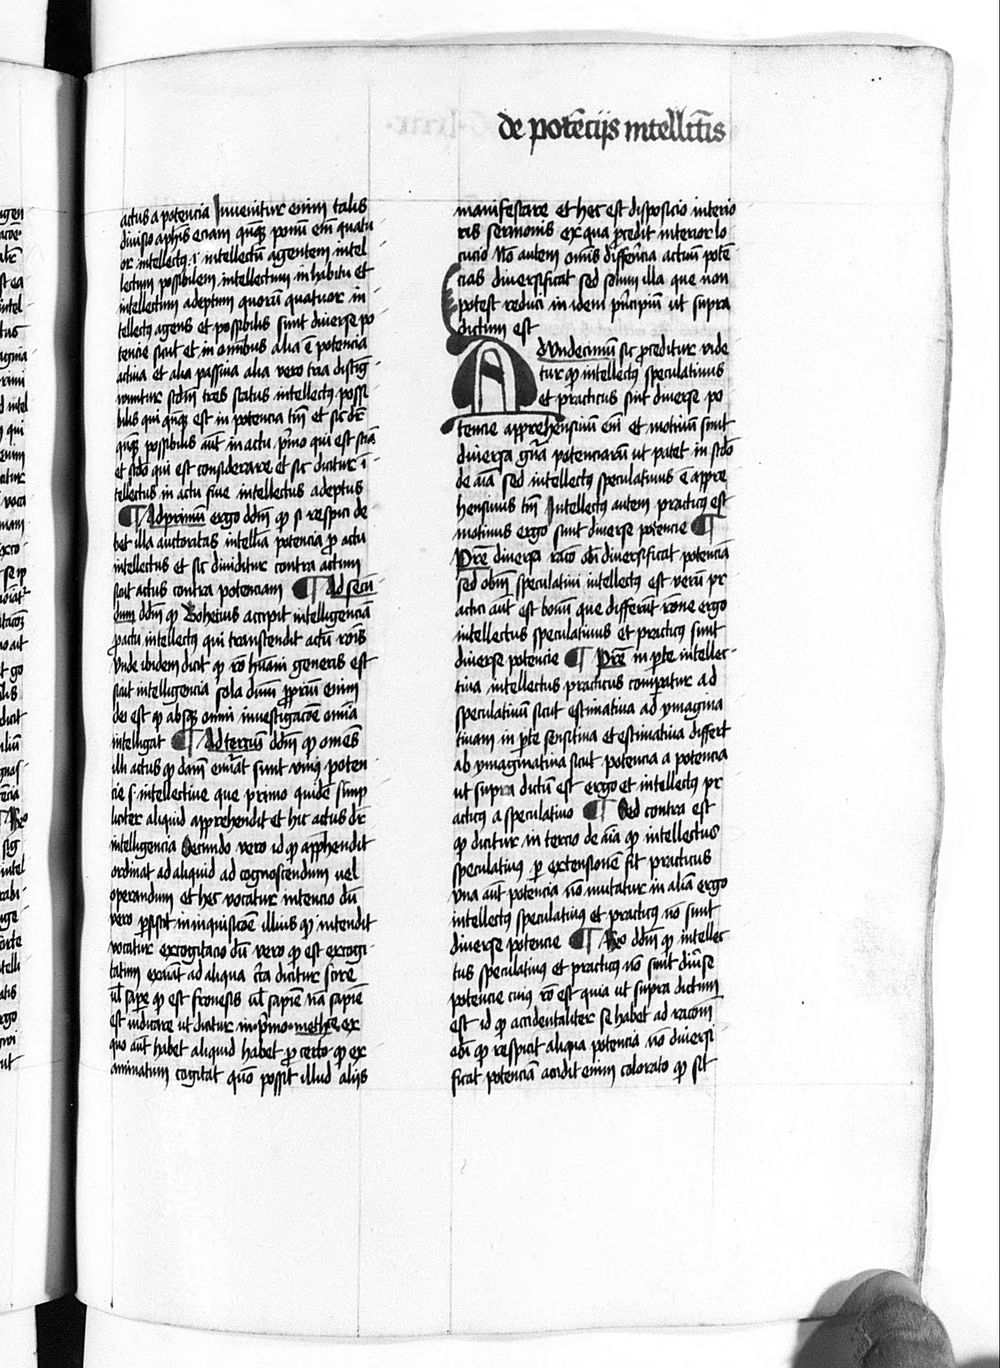 de potēcijs intellc̄tis
actus a potencia Inuenitur enim talis
diuisio aphis eciam qn̄qꝫ ponūt em̄ quatu
or intellectꝰ .i. intellectū agentem intel
lectum possibilem intellectum in habitu et
intellectum adeptum quorū quatuor in
tellectꝰ agens et possibilis sunt diuerse po
tencie sicut et in omnibus alia ē potencia
actiua et alia passiua alia vero tria distīg
wuntur scd̄m tres status intellectꝰ possi
bilis qui qn̄qꝫ est in potencia tm̄ et sic dr̄
qn̄qꝫ possibilis aut̄ in actu pͥmo qui est sciā
et sc̄do qui est considerare et sic dicitur ī
tellectus in actu siue intellectus adeptus
¶ Ad primū ergo dd̄m qꝫ si respici de
bet illa auctoritas intelliā potencia ꝓ actu
intellectus et sic diuiditur contra actum
sicut actus contra potenciam ¶ Ad secū
dum dd̄m qꝫ Bohecius accipit intelligenciā
ꝓ actu intellectꝰ qui transcendit actū rōis
vnde ibidem dicit qꝫ rō hūani generis est
sicut intelligencia sola diuīi ꝓprium enim
dei est qꝫ absqꝫ omni inuestigacōe omīa
intelligat ¶ Ad tercīu dd̄m qꝫ omēs
illi actus qꝫ damº enūat sunt vniꝰ poten
cie .s. intellectiue que primo quidē simp
liciter aliquid apprehendit et hic actus dr̄
intelligencia Secundo vero id qꝫ app̄hendit
ordinat ad aliquid ad cognoscendum uel
operandum et hec vocatur intencio dū
vero ꝑsistit in inquisicōe illius qꝫ intendit
vocatur excogitacio dū vero qꝫ est excogi
tatum exāiat ad aliqua c̄ta dicitur scire
ul̄ sape qꝫ est fronesis ul̄ sapiē nā sapiē
est iudicare ut dicitur in pͥmo methꝭce ex
quo aut̄ habet aliquid habet ꝓ certo qꝫ ex
aminatum cogitat quō possit illud alijs
manifestare et hec est disposicio interio
ris sermonis ex qua ꝓcedit interior lo
cucio Nō autem omīs differēcia actuū potē
cias diuersificat sed solum illa que non
potest reduci in idem pͥncipiū ut supra
dictum est
Ad Vndecimū sic ꝓceditur vide
tur qꝫ intellectꝰ speculatiuus
et practicus sint diuerse po
tencie apprehensiuū em̄ et motiuum sunt
diuersa gn̄a potenciarū ut patet in scdō
de aīa sed intellectꝰ speculatiuus ē appre
hensiuus tm̄ Intellectꝰ autem practicꝰ est
motiuus ergo sunt diuerse potencie ¶
Pret̄ diuersa racō obi diuersificat potenciā
sed obm̄ speculatiui intellectꝰ est verū pr
actici aut̄ est bonū que differūt rōne ergo
intellectus speculatiuus et practicꝰ sunt
diuerse potencie ¶ Pret̄ in ꝑte intellec
tiua intellectus practicus comꝑatur ad
speculatiuū sicut estimatiua ad ymagina
tiuam in ꝑte sensitiua et estimatiua differt
ab ymaginatiua sicut potencia a potencia
ut supra dictū est ergo et intellectꝰ pr
acticꝰ a speculatiuo ¶ Sed contra est
qꝫ dicitur in tercio de aīa qꝫ intellectus
speculatiuꝰ ꝑ extensionē fit practicus
vna aut̄ potencia nō mutatur in aliā ergo
intellectꝰ speculatiuꝰ et practicꝰ nō sunt
diuerse potencie ¶ Rn̄o dd̄m qꝫ intellec
tus speculatiuꝰ et practicꝰ nō sunt diūse
potencie cuiꝰ rō est quia ut supra dictum
est id qꝫ accidentaliter se habet ad racōm
obi qꝫ respicit aliqua potencia nō diuersi
ficat potenciā accidit enim colorato qꝫ sit